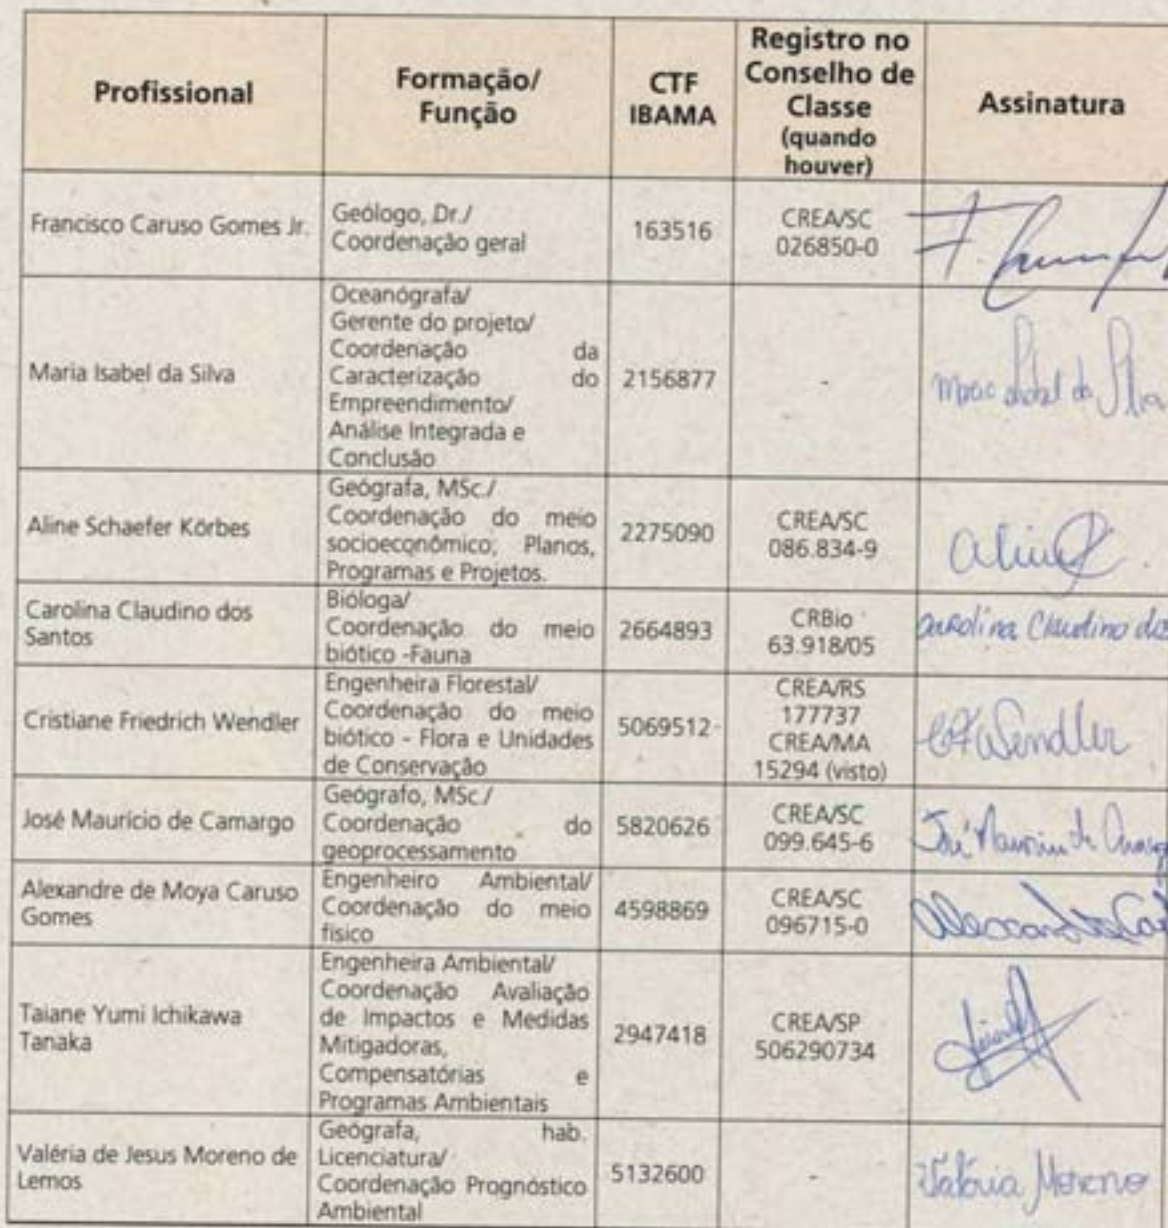 Profissional
Formação/
Função
CTF
IBAMA
Registro no
Conselho de
Classe
(quando
houver)
Assinatura
Francisco Caruso Gomes Jr.
Geólogo, Dr./
Coordenação geral
163516
CREA/SC
026850-0
Maria Isabel da Silva
Oceanógrafa/
Gerente do projeto/
Coordenação da
Caracterização do
Empreendimento/
Análise Integrada e
Conclusão
2156877
-
Maria Isabel da Silva
Aline Schaefer Körbes
Geógrafa, MSc./
Coordenação do meio
socioeconômico; Planos,
Programas e Projetos.
2275090
CREA/SC
086.834-9
Carolina Claudino dos
Santos
Bióloga/
Coordenação do meio
biótico -Fauna
2664893
CRBio
63.918/05
Carolina Claudino dos
Cristiane Friedrich Wendler
Engenheira Florestal/
Coordenação do meio
biótico - Flora e Unidades
de Conservação
5069512
CREA/RS
177737
CREA/MA
15294 (visto)
Wendler
José Maurício de Camargo
Geógrafo, MSc./
Coordenação do
geoprocessamento
5820626
CREA/SC
099.645-6
José Maurício de
Alexandre de Moya Caruso
Gomes
Engenheiro Ambiental/
Coordenação do meio
físico
4598869
CREA/SC
096715-0
Taiane Yumi Ichikawa
Tanaka
Engenheira Ambiental/
Coordenação Avaliação
de Impactos e Medidas
Mitigadoras,
Compensatórias e
Programas Ambientais
2947418
CREA/SP
506290734
Valéria de Jesus Moreno de
Lemos
Geógrafa, hab.
Licenciatura/
Coordenação Prognóstico
Ambiental
5132600
-
Valéria Moreno